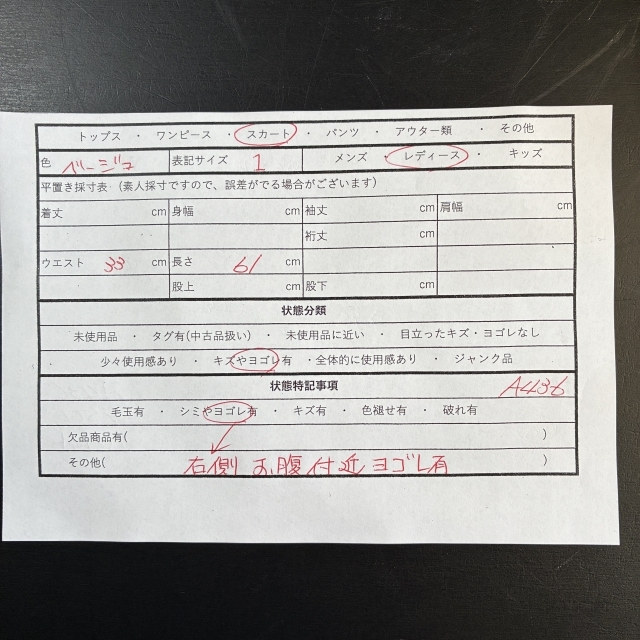 トップス ・ ワンピース ・ スカート ・ パンツ ・ アウター類 ・ その他
色 ベージュ 表記サイズ 1 メンズ ・ レディース ・ キッズ
平置き採寸表（素人採寸ですので、誤差がでる場合がございます）
着丈 cm 身幅 cm 袖丈 cm 肩幅 cm
裄丈 cm
ウエスト 33 cm 長さ 61 cm
股上 cm 股下 cm
状態分類
未使用品 ・ タグ有(中古品扱い) ・ 未使用品に近い ・ 目立ったキズ・ヨゴレなし
少々使用感あり ・ キズやヨゴレ有 ・全体的に使用感あり ・ ジャンク品
状態特記事項 A436
毛玉有 ・ シミやヨゴレ有 ・ キズ有 ・ 色褪せ有 ・ 破れ有
欠品商品有( )
その他( 右側 お腹付近 ヨゴレ有 )